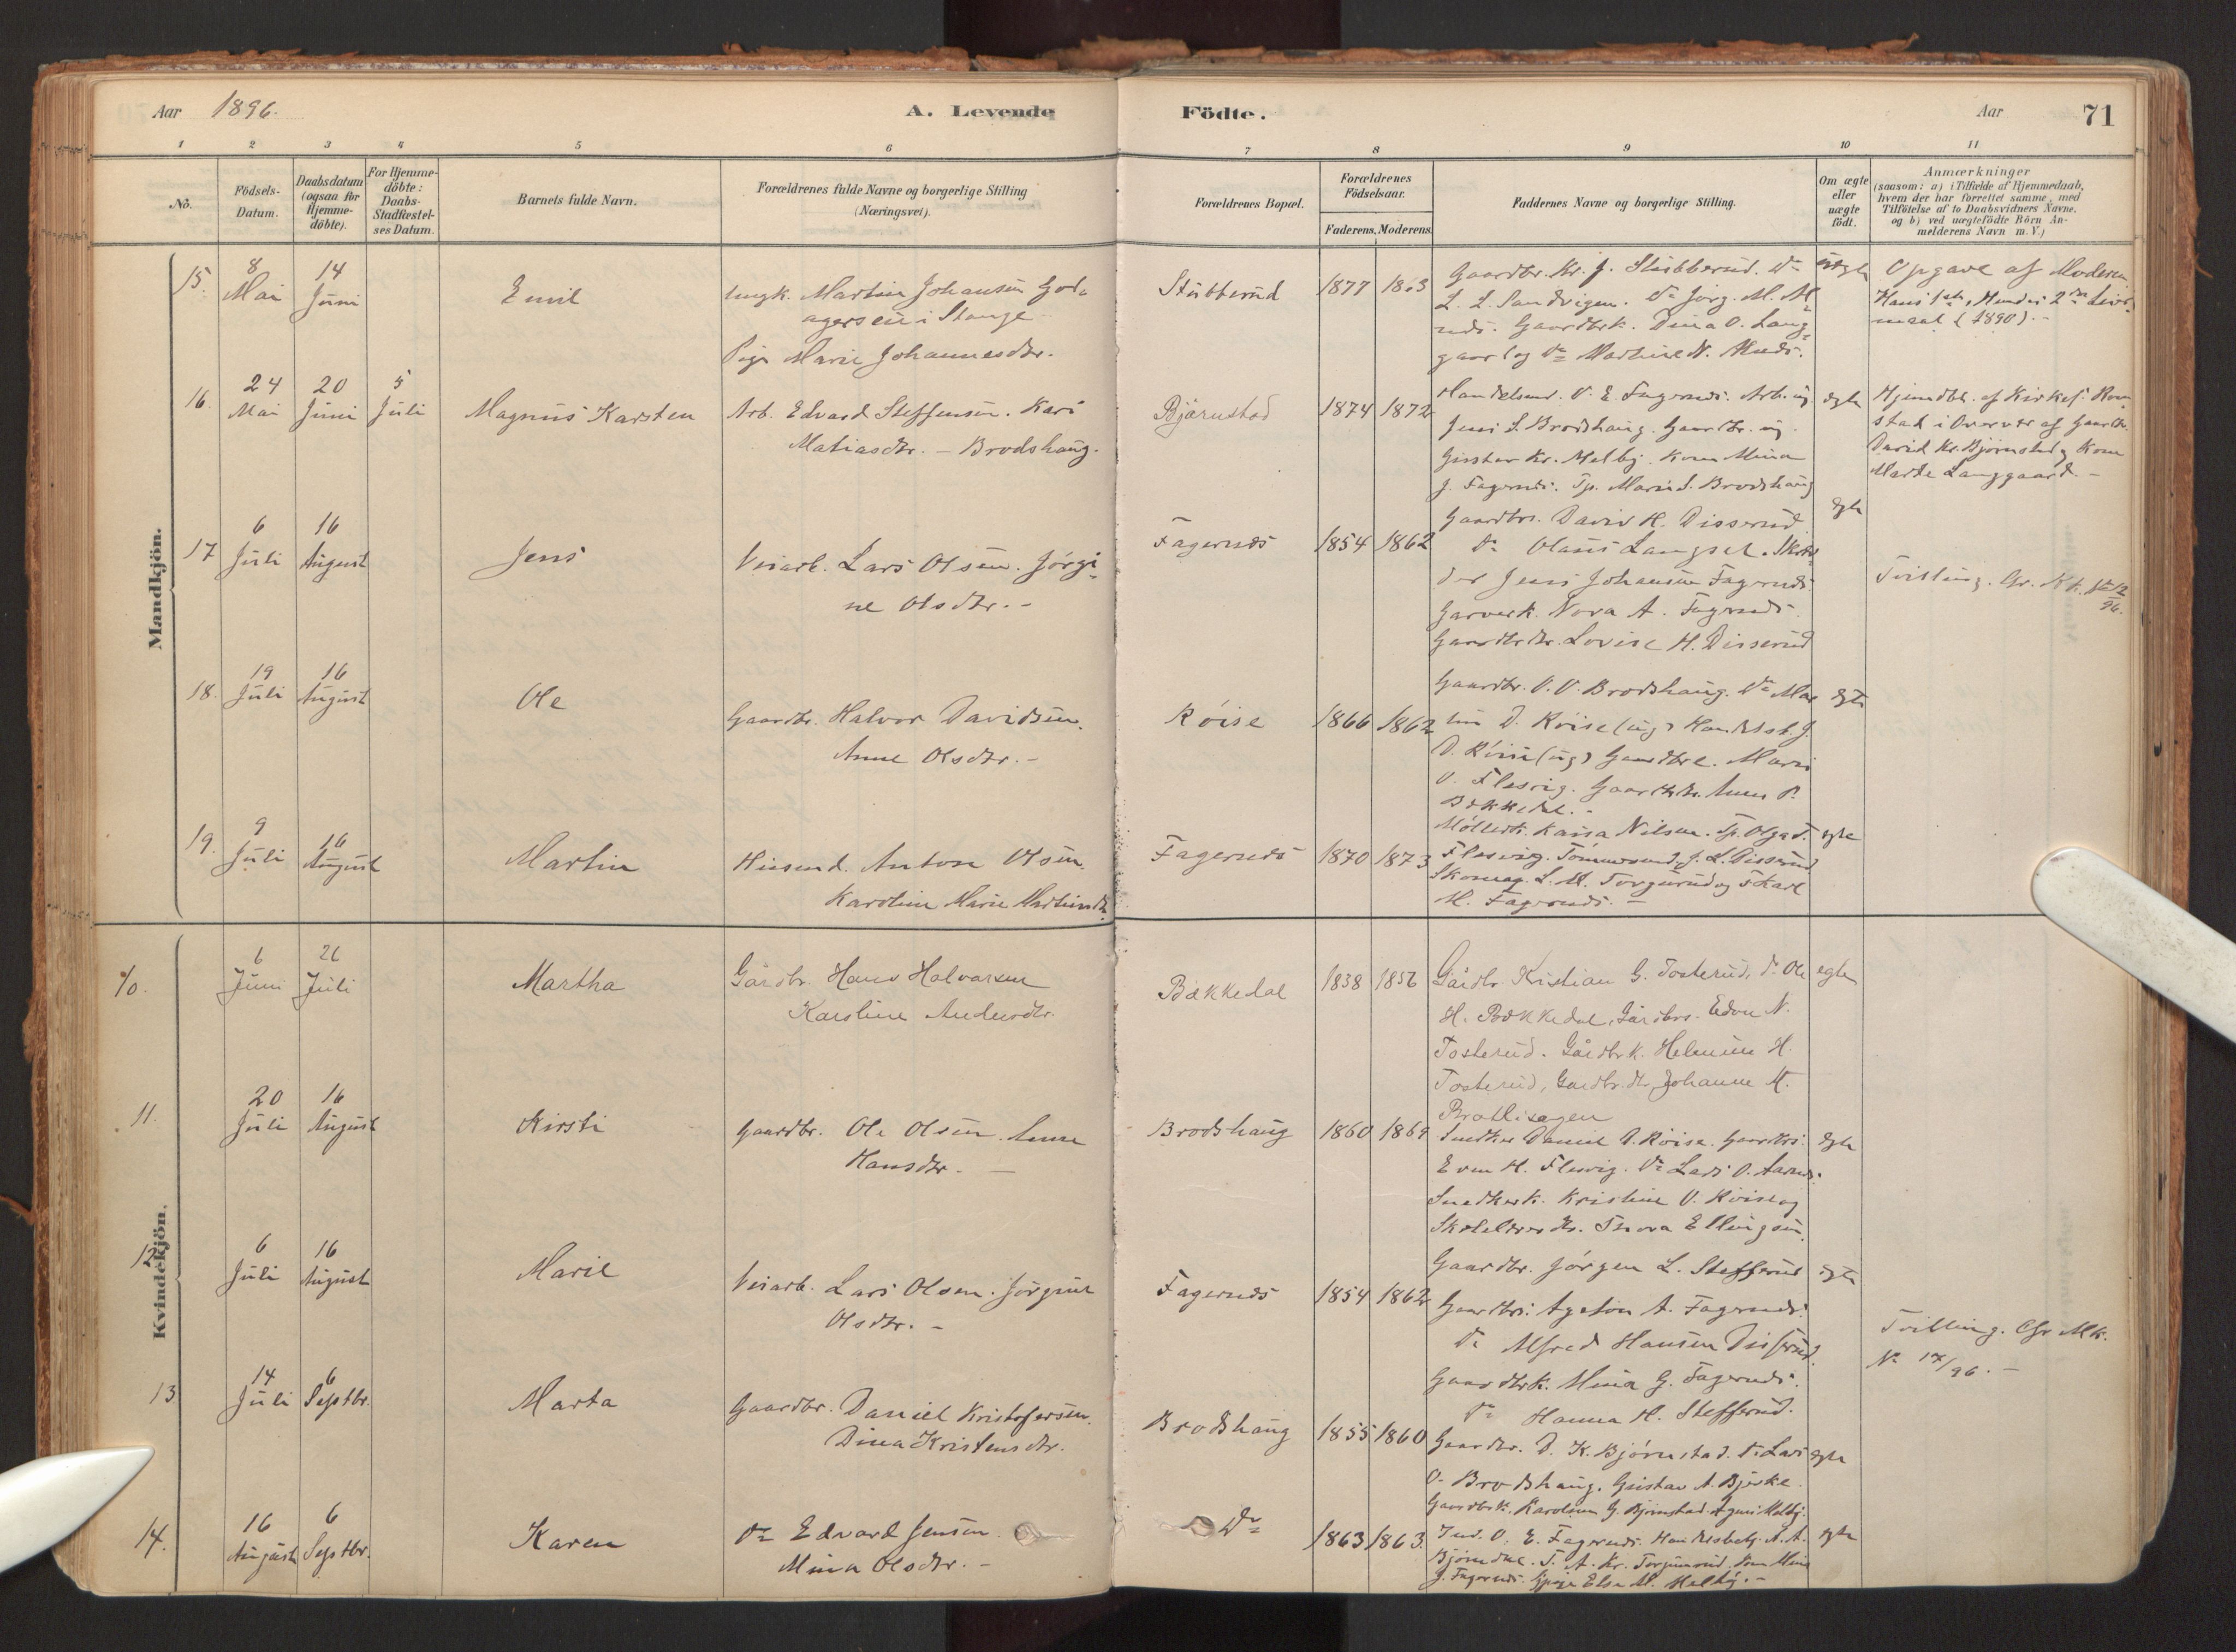 Aar 1896.
A. Levende
Födte.
Aar
71
1 2 3 4 5 6 7 8 9 10 11
No.
Födsels-
Datum.
Daabsdatum
(ogsaa for
Hjemme-
döbte).
For Hjemme-
döbte:
Daabs-
Stadfæstel-
ses Datum.
Barnets fulde Navn.
Forældrenes fulde Navne og borgerlige Stilling
(Næringsvei).
Forældrenes Bopæl.
Forældrenes
Födselsaar.
Faderens. Moderens.
Faddernes Navne og borgerlige Stilling.
Om ægte
eller
uægte
födt.
Anmærkninger
(saasom: a) i Tilfælde af Hjemmedaab,
hvem der har forrettet samme, med
Tilföielse af to Daabsvidners Navne,
og b) ved uægtefödte Börn An-
melderens Navn m. V.)
Mandkjön.
15.
8 Mai
14 Juni
Emil
Ungk. Martin Johansen
i Stange
Pige Marie Johannesdtr.
Stubberud
1877
Gaardbr. Kr. J. Stubberud. Do
L. L. Sandvigen. Do Jørg. M. M
Gaardbrk. Dina O. Lang-
gaard og Do
uægte
Opgave af Moderen
Hans 1ste, Hendes 2det Leier-
maal (1890).-
16.
24 Mai
20 Juni
5 Juli
Magnus Karsten
Arb. Edvard Steffensen. Kari
Matiasdtr. - Brodshaug.
Bjørnstad
1874 1872
Handelsmd. O. E. Fagernæs. Arb. ug.
Jens S. Brodshaug. Gaardbr. ug.
Gustav Kr. Melby. Kone Mina
J. Fagernæs. Tp. Marie S. Brodshaug
ægte
Hjemdbt. af Kirkes.
stad i Overvær af Gaardbr.
David Kr. Bjørnstad og Kone
Marte Langgaard.-
17
6 Juli
16 August
Jens
Veiarb. Lars Olsen. Jørgi-
ne Olsdtr.-
Fagernæs
1854 1862
Gaardbrs. David H. Disserud
Do Olaus Langset.
Jens Johansen Fagernæs.
Garverk. Nora A. Fagernæs.
Gaardbrdtr. Lovise H. Disserud
ægte
Tvilling. Cfr. Kk. No 12/96.
18.
19 Juli
16 August
Ole
Gaardbr. Halvor Davidsen.
Anne Olsdtr.-
Røise
1866 1862
Gaardbr. O. O. Brodshaug. Do Mar-
tin D. Røise (ug) Handelsb. J.
D. Røise (ug) Gaardbrk. Mari
O. Flesvig. Gaardbrdtr. Anne P.
Bækkedal.-
ægte
19.
9 Juli
16 August
Martin
Huusmd. Anton Olsen.
Karoline Marie Martinsdtr.
Fagernæs
1870 1873
Møllerk. Kaisa Nilsen. Tp. Olga T.
Flesvig. Tømmermd. J. L. Disserud
Skomag. L. M. Torgunrud og Karl
M. Fagernæs.-
ægte
Kvindekjön.
10.
6 Juni
26 Juli
Martha
Gårdbr. Hans Halvorsen
Karoline Andersdtr.
Bækkedal
1838 1856
Gårdbr. Kristian G. Tosterud, Do Ole
H. Bækkedal, Gårdbrs. Edon N.
Tosterud. Gårdbrk. Helmine H.
Tosterud, Gardbr.dtr. Johanne M.
Bratlisagen
egte
11.
20 Juli
16 August
Kirsti
Gaardbr. Ole Olsen. Anne
Hansdtr. -
Brodshaug
1860 1869
Snedker Daniel D. Røise. Gaardbrs.
Even H. Flesvig. Do Lars O. Aarnæs.
Snedkerk. Kristine O. Røise og
Skolelærerdtr. Thora Ellingsen.
ægte
12
6 Juli
16 August
Marie
Veiarb. Lars Olsen. Jørgine
Olsdtr. -
Fagernæs
1854 1862
Gaardbr. Jørgen L. Stefferud
Gaardbrs. Agaton A. Fagernæs.
Do Alfred Hansen Disserud.
Gaardbrk. Mina G. Fagernæs.
Do Hanna H. Stefferud.
ægte
Tvilling. Cfr Mk.
No 17/96.-
13
14 Juli
6 Septbr.
Marta
Gaardbr. Daniel Kristofersen.
Dina Kristensdtr.
Brodshaug
1855 1860
Gaardbr. D. K. Bjørnstad. Do Lars
O. Brodshaug. Gustav A. Bjerke.
Gaardbrk. Karoline G. Bjørnstad. Agnes Melby.
ægte
14.
16 August
6 Septbr.
Karen
Do Edvard Jensen.
Mina Olsdtr.-
Do
1863 1863
O. E. Fagernæs. Handelsbetj. A. A.
Bjørndal. T. A. Kr. Torgunrud. Kone Mina
J. Fagernæs. Pige Else M. Melby.-
ægte